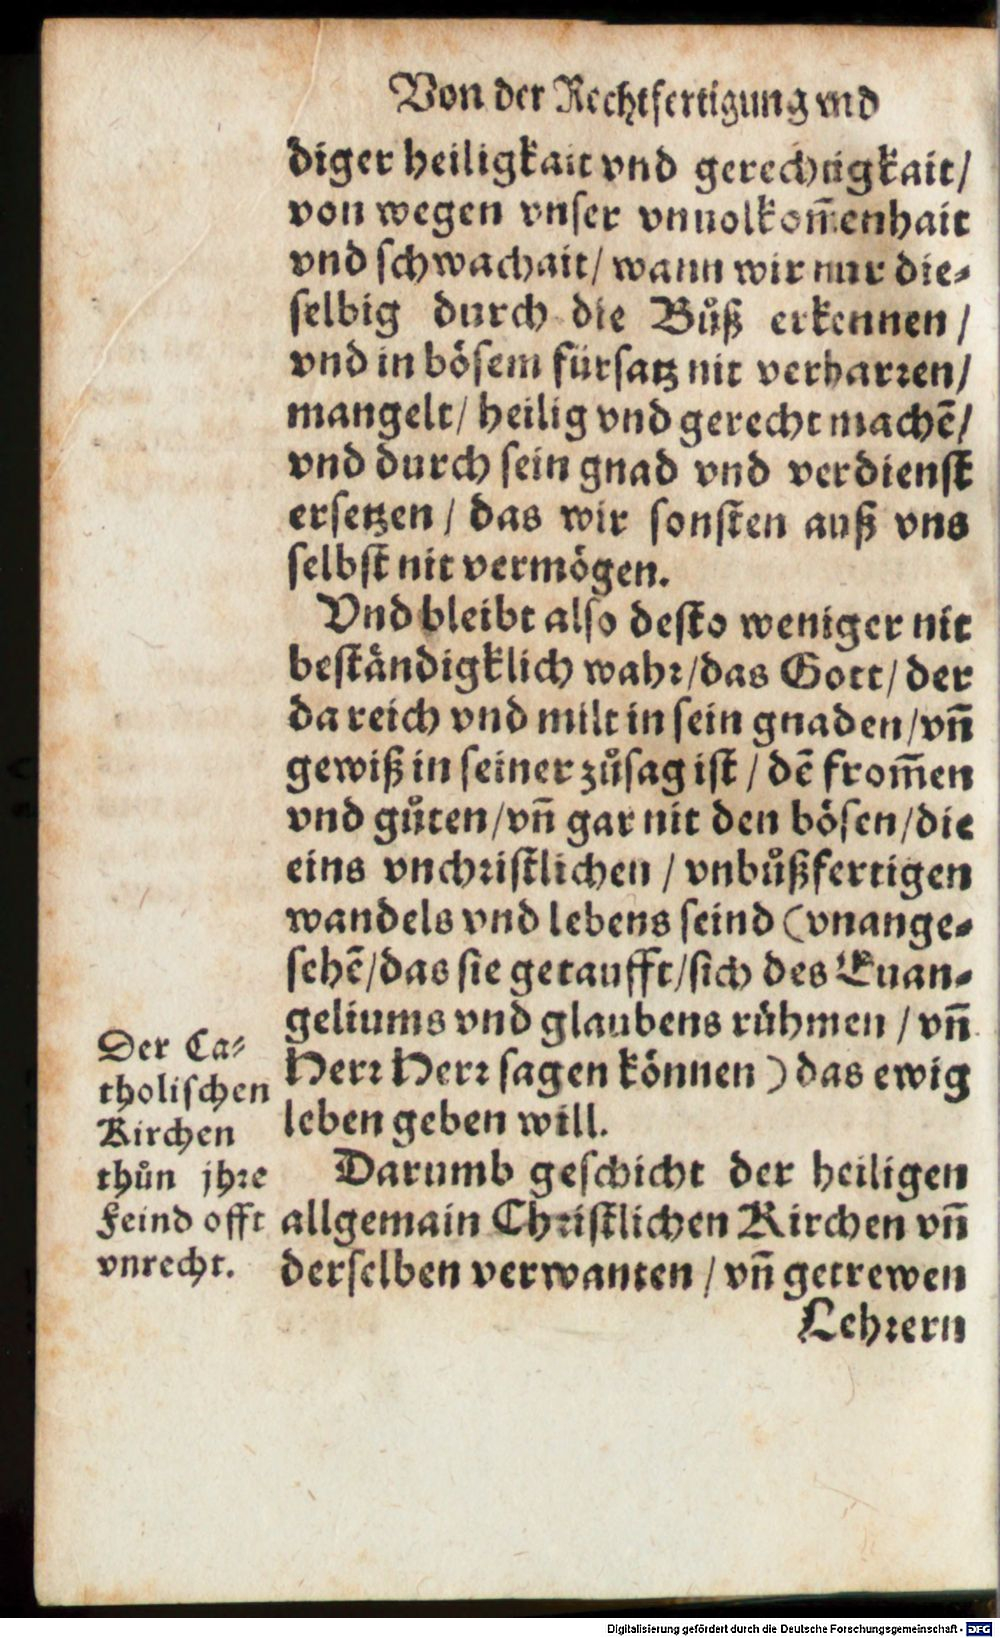 Von der Rechtfertigung vnd
diger heiligkait vnd gerechtigkait/
von wegen vnser vnuolkom̃enhait
vnd schwachait/ wann wir nur die⸗
selbig durch die Bůß erkennen/
vnd in bösem fürsatz nit verharꝛen/
mangelt/ heilig vnd gerecht machẽ/
vnd durch sein gnad vnd verdienst
ersetzen/ das wir sonsten auß vns
selbst nit vermögen.
Vnd bleibt also desto weniger nit
beständigklich wahꝛ/das Gott/ der
da reich vnd milt in sein gnaden/vñ
gewiß in seiner zůsag ist/ dẽ from̃en
vnd gůten/vñ gar nit den bösen/die
eins vnchꝛistlichen/ vnbůßfertigen
wandels vnd lebens seind (vnange⸗
sehẽ/das sie getaufft/sich des Euan⸗
geliums vnd glaubens rühmen/ vñ
Herꝛ Herꝛ sagen können) das ewig
leben geben will.
Der Ca⸗
tholischen
Kirchen
thůn jhꝛe
Feind offt
vnrecht.
Darumb geschicht der heiligen
allgemain Chꝛistlichen Kirchen vñ
derselben verwanten/ vñ getrewen
Lehꝛern
Digitalisierung gefördert durch die Deutsche Forschungsgemeinschaft - DFG